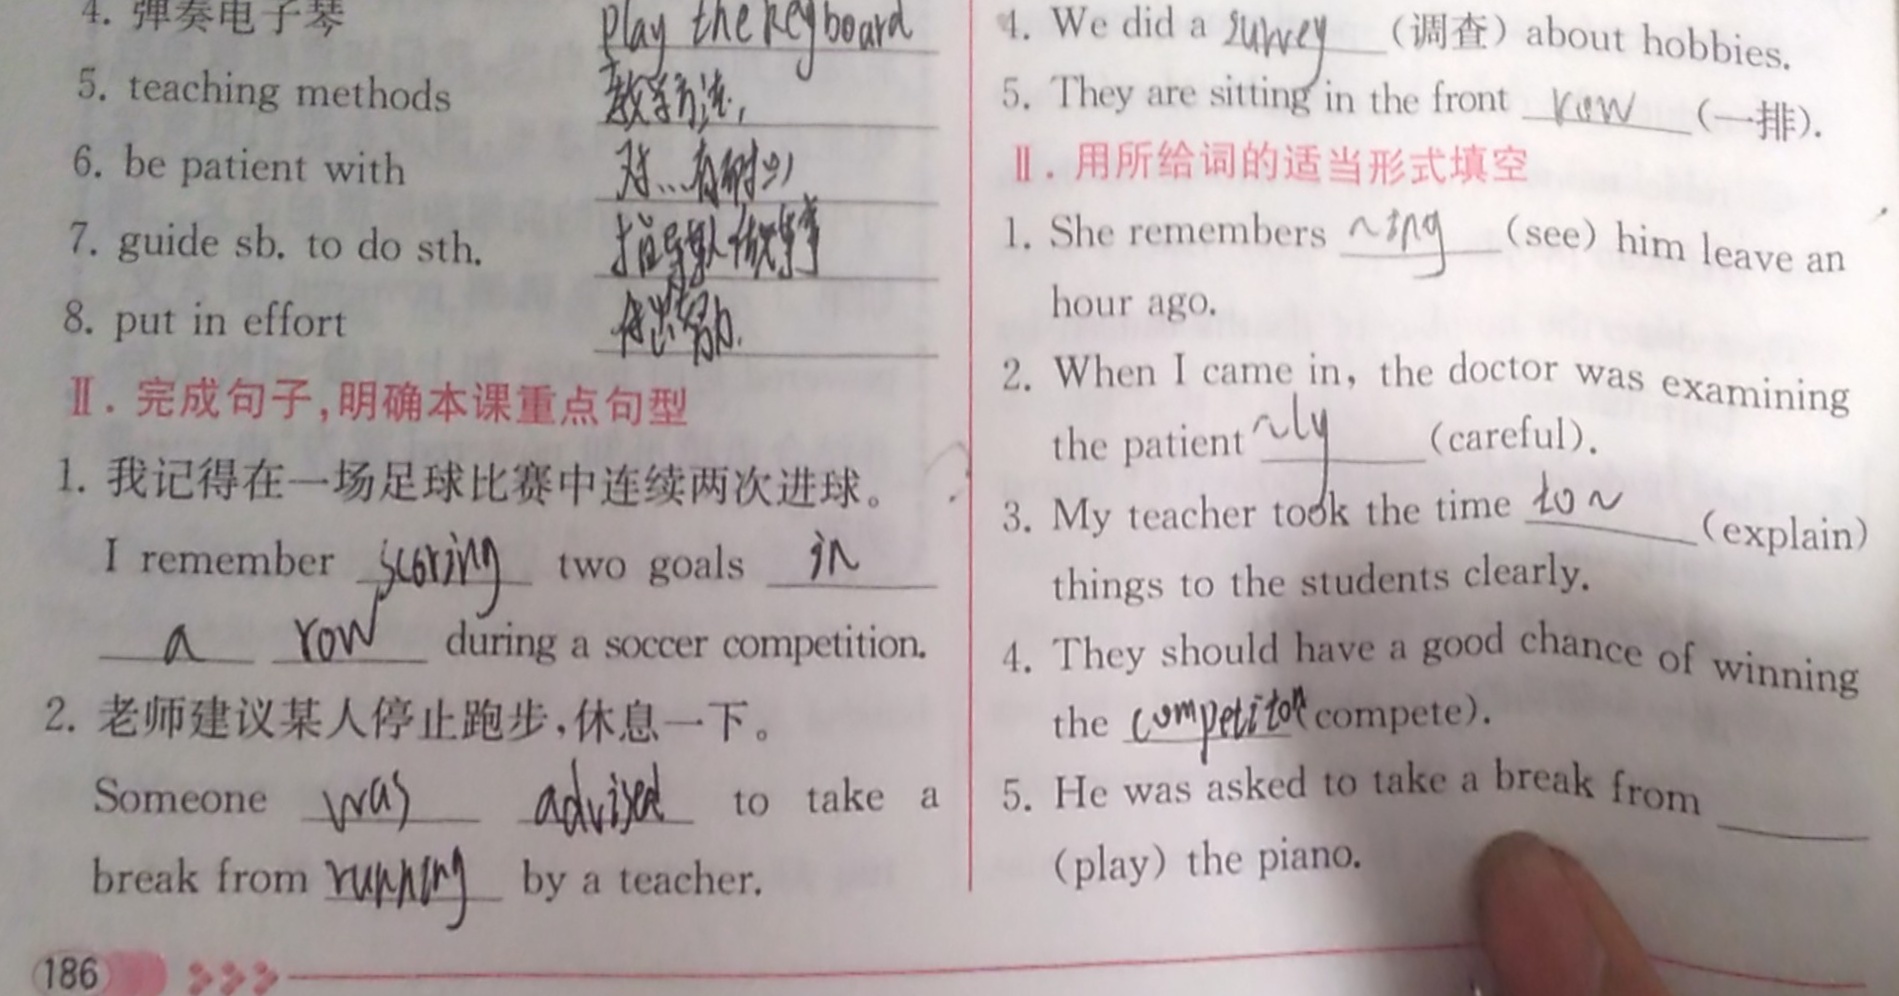 4. 弹奏电子琴 play the keyboard
5. teaching methods 教学方法
6. be patient with 对...有耐心
7. guide sb. to do sth. 指导某人做某事
8. put in effort 付出努力.
Ⅱ. 完成句子,明确本课重点句型
1. 我记得在一场足球比赛中连续两次进球。
I remember scoring two goals in
a row during a soccer competition.
2. 老师建议某人停止跑步,休息一下。
Someone was advised to take a
break from running by a teacher.
186
4. We did a survey (调查) about hobbies.
5. They are sitting in the front row (一排).
Ⅱ. 用所给词的适当形式填空
1. She remembers ~ing (see) him leave an
hour ago.
2. When I came in, the doctor was examining
the patient ~ly (careful).
3. My teacher took the time to ~ (explain)
things to the students clearly.
4. They should have a good chance of winning
the competiton compete).
5. He was asked to take a break from ______
(play) the piano.